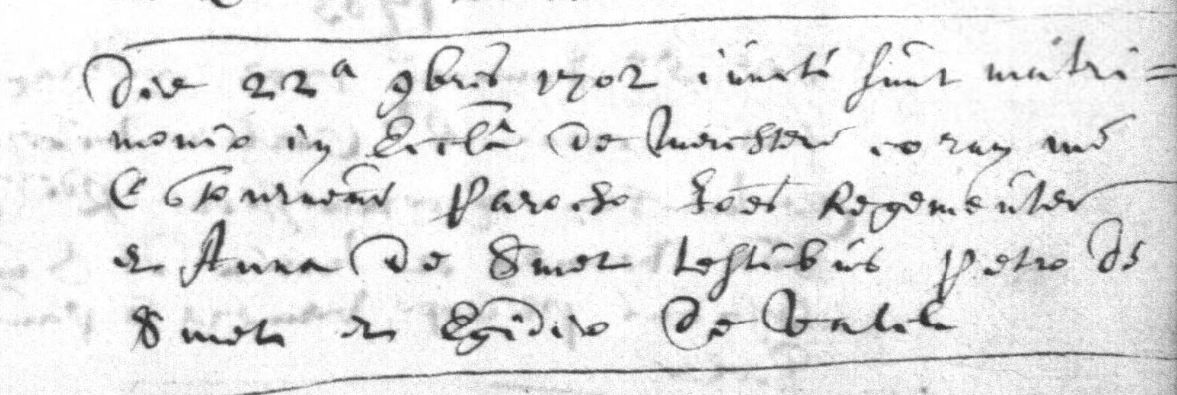 Die 22ª 9bris 1702 iuncti sunt matri=
monio in Ecclâ de Merchten coram me
parocho Joes Regementer
et Anna de Smet testibus Petro de
Smet et Egidio de